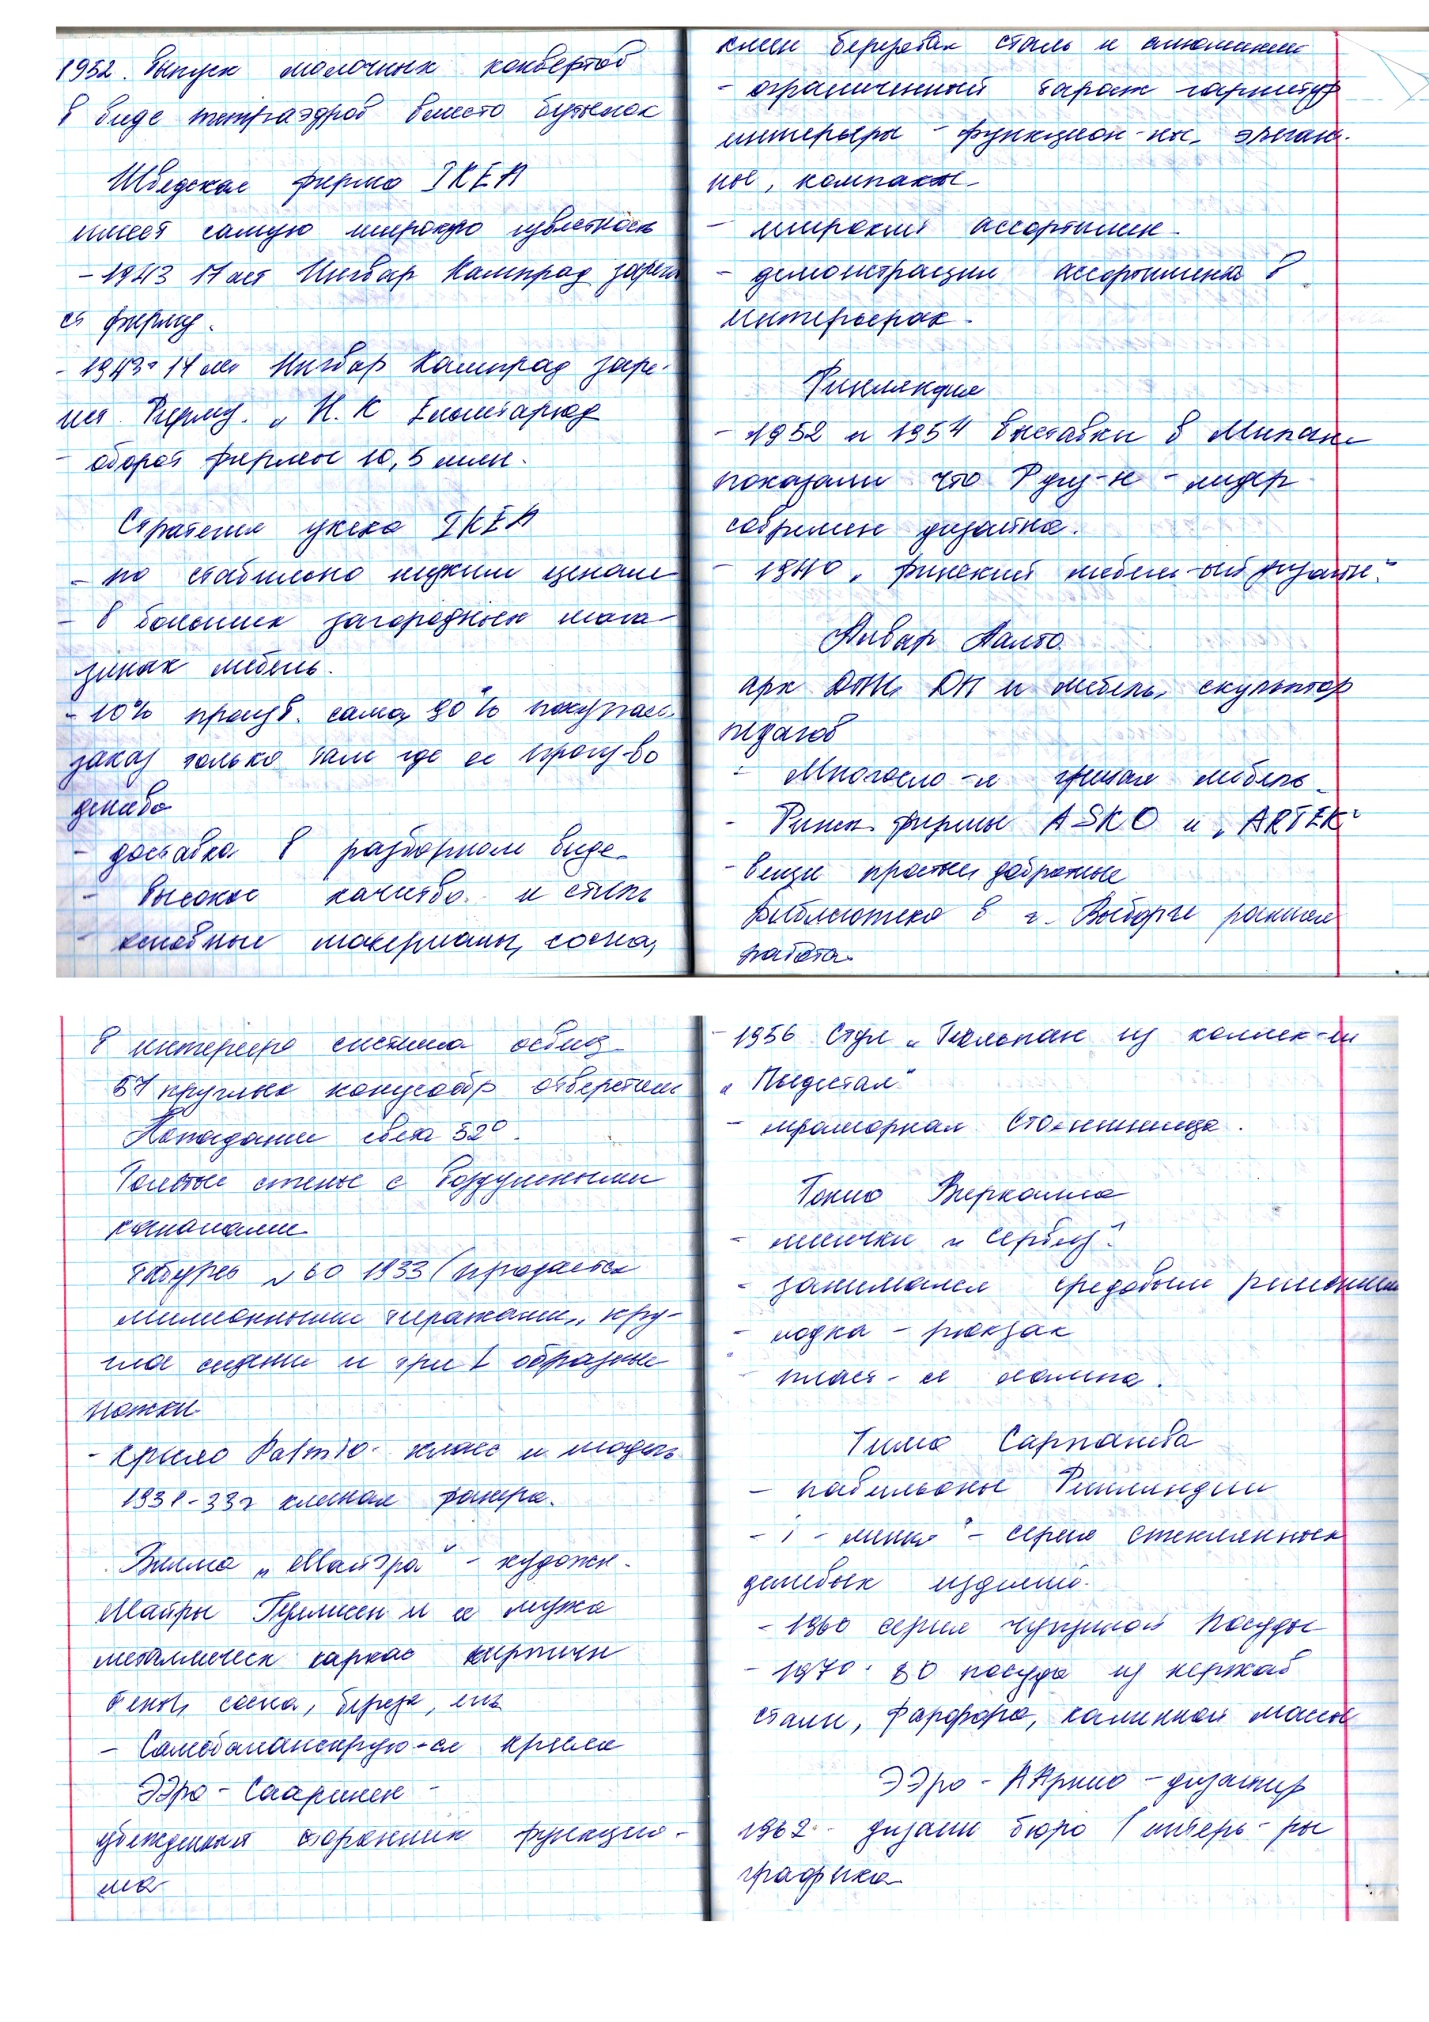 1952. Выпуск молочных конвертов
в виде тетраэдров вместо бутылок
Шведская фирма IKEA
имеет самую широкую известность
- 1943 17 лет Ингвар Кампрад зареги
ст фирму.
- 1943г 17 лет Ингвар Кампрад заре-
ист. Фирму. „И. К
- оборот фирмы 10,5 млн.
Стратегия успеха IKEA
- по стабильно низким ценам
- в больших загородных мага-
зинах мебель.
- 10% произв. сама, 90% покупает
заказ только там где ее произ-во
дешево
- доставка в разборном виде
- высокое качество и стиль
- основные материалы, сосна,
клеен береза сталь и алюминий
- ограниченный тираж гарнитур
интерьеры - функцион-ны, элеган-
ные, компакт
- широкий ассортимен-
- демонстрация ассортимента в
интерьерах.
Финляндия
- 1952 и 1954 выставки в Милане
показали что Р - лидер
соврем ен дизайна.
- 1940 „финский мебель-ый дизайн“
Алвар Аалто
арх ДПИ, и мебель, скульптор
педагог
- Многосло-я гнутая мебель
- Финск фирмы ASKO и „ARTEK“
- вещи простые добротные
Библиотека в г. Выборге ранняя
работа.
в интерьере система освещ
57 круглых конусообр отверстий
Попадание света 52°.
Толстые стены с воздушными
каналами
Табурет №60 1933 (продается
миллионными тиражами, кру-
глое сидение и три L образные
ножки
- кресло Palmio- класс и модель
1931-33г клееная фанера.
Вилла „Майэра“ - художн.
Майры Гуллисен и ее мужа
металлическ каркас кирпичн
бетон, сосна, береза, ель
- Самобалансирую-ся кресла
Ээро - Сааринен -
убежденный сторонник функцио-
ма
- 1956 Стул „Тюльпан из коллек-ии
„Пьедестал“
- мраморная столешница.
Тапио Вирккала
- лисички и сервиз“
- занимался средовым решением
- лодка - рюкзак
- пласт-я лампа.
Тимо Сарпанева
- павильоны Финляндии
- i - линия“ - серия стеклянных
дешевых изделий.
- 1960 серия чугунной посуды
- 1970-80 посуда из нержав
стали, фарфора, каминной массы
Ээро - ААрнио - дизайнер
1962 - дизайн бюро / интерь-ры
графика